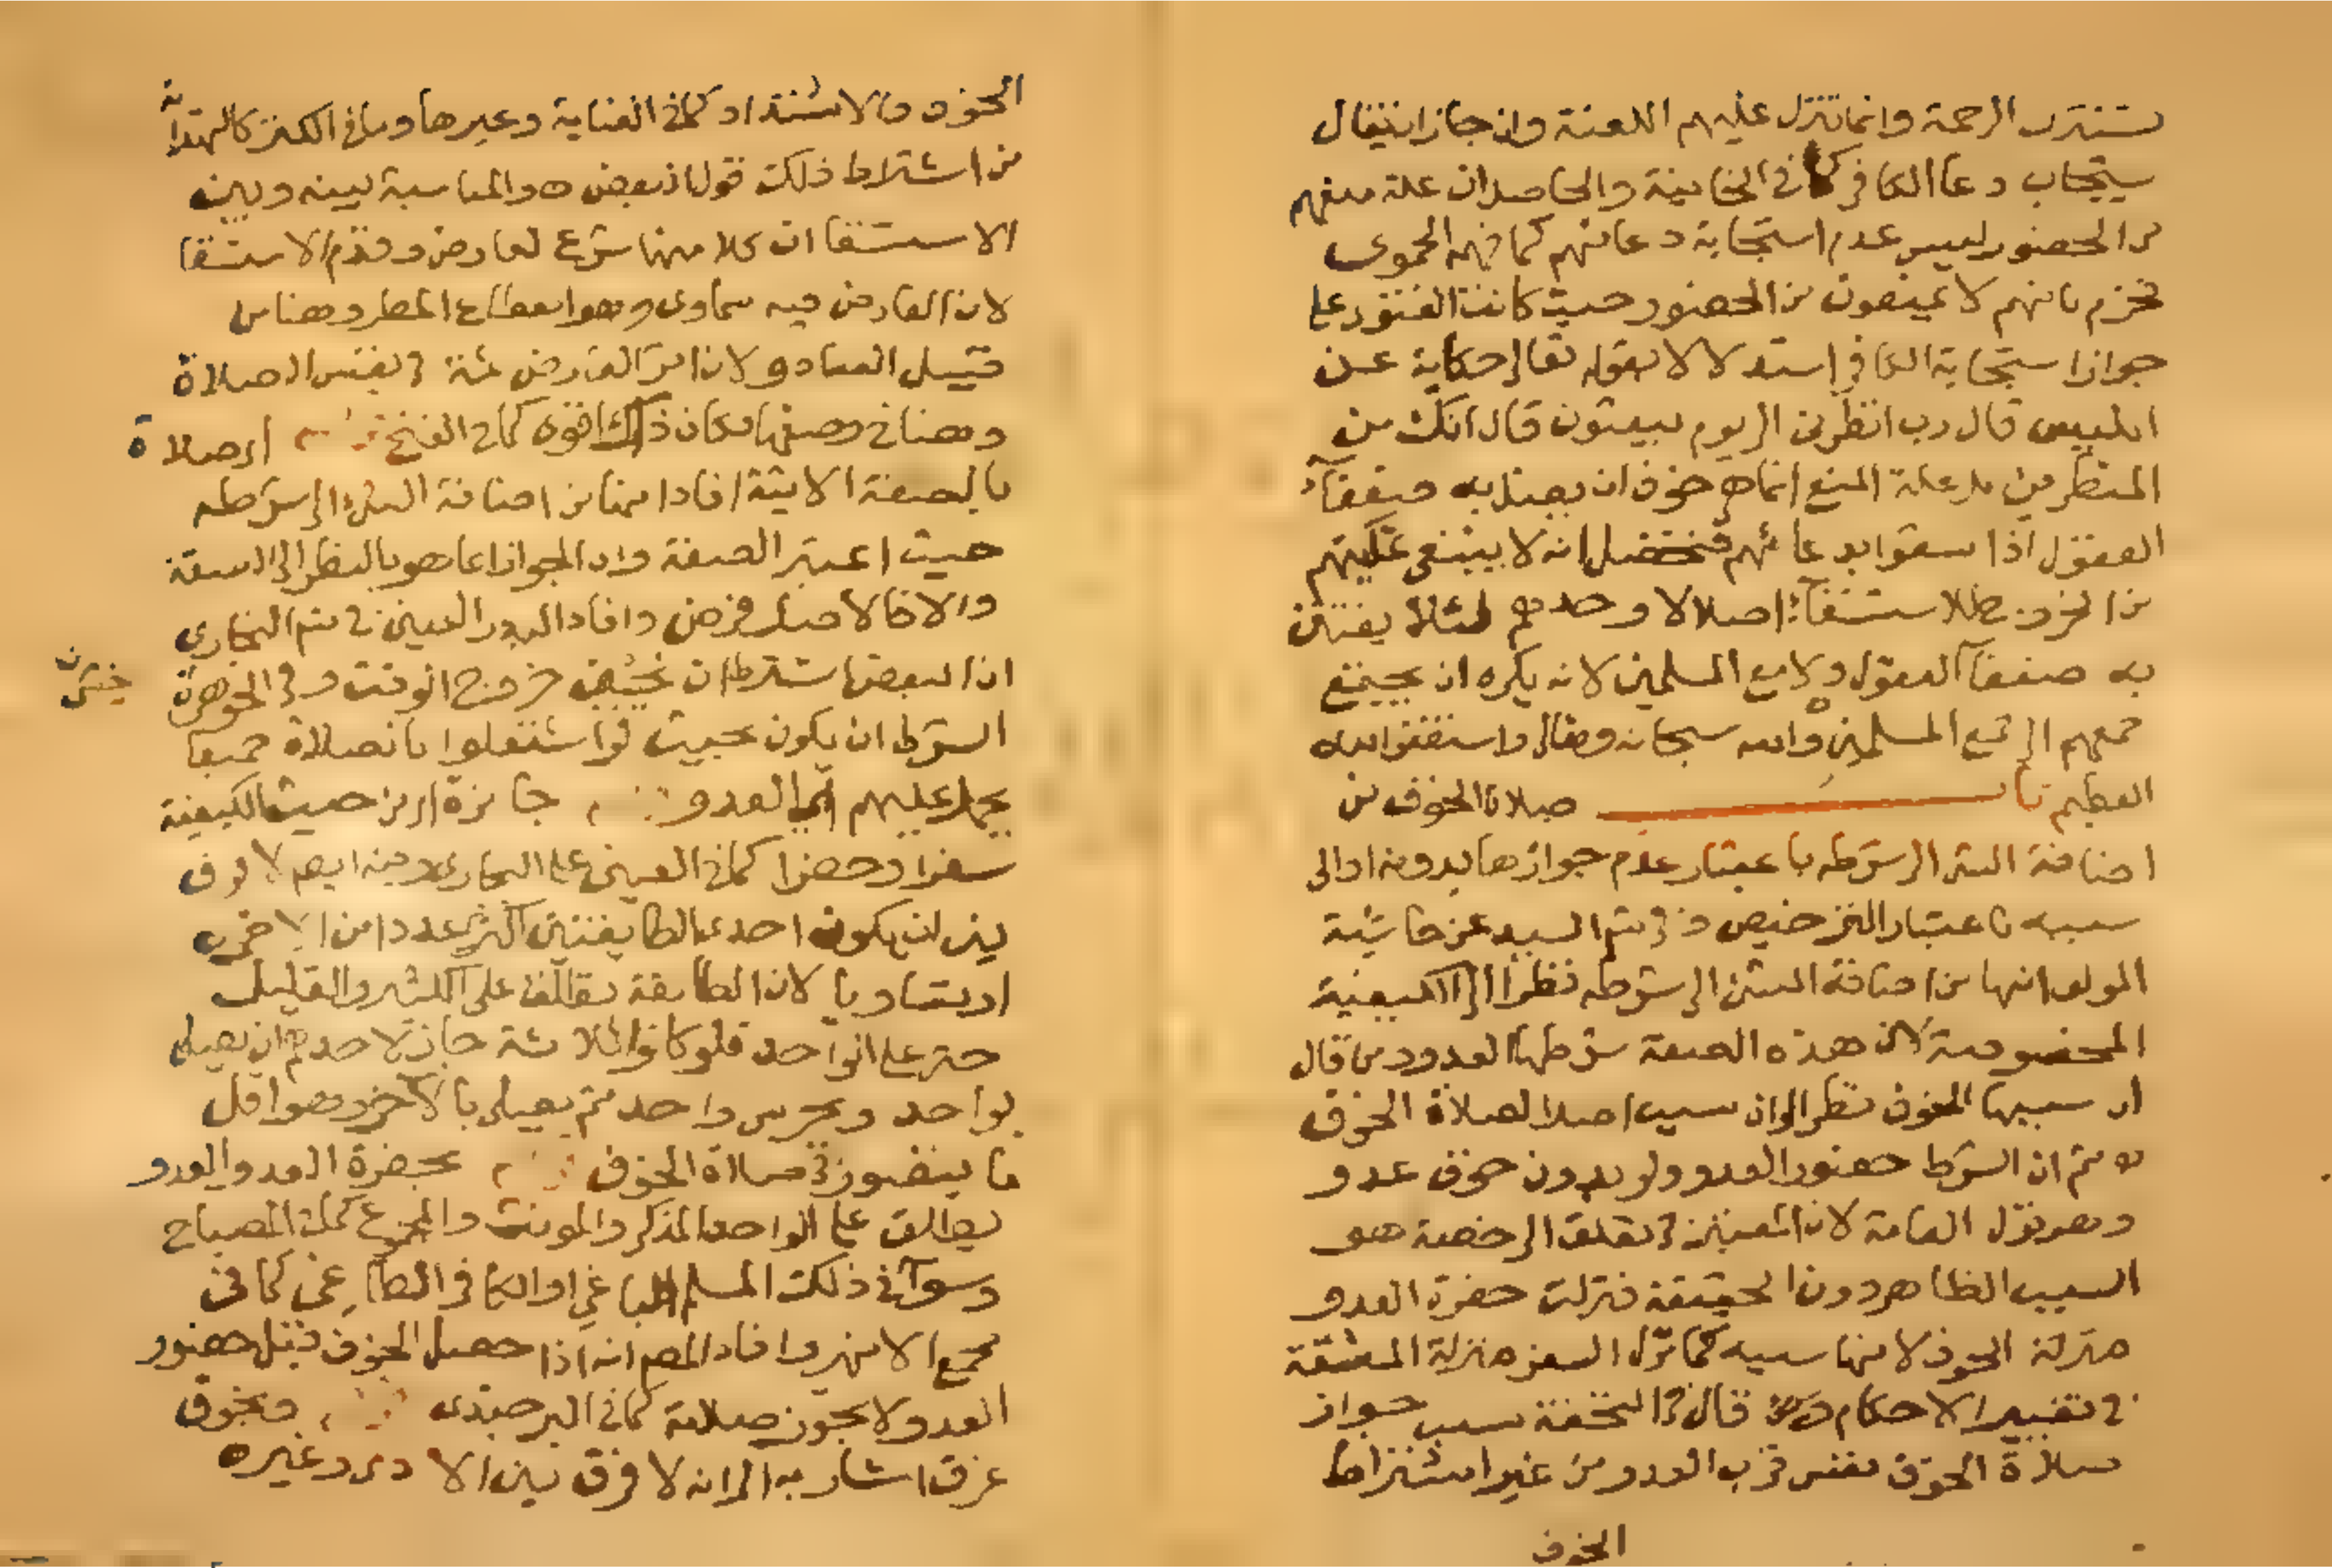 تستنزل الرحمة وانما تنزل عليهم اللعنة وان جاز ان يقال
يستجاب دعا الكافر كما في الخانية والحاصل ان علة منعهم
من الحضور ليس عدم استجابة دعائهم كما فهمه الحموى
فجزم بانهم لا يمنعون من الحضور حيث كانت الفتوى على
جواز استجابة الكافر استدلالا بقوله تعالى حكاية عن
ابليس قال رب انظرنى الى يوم يبعثون قال انك من
المنظرين بل علة المنع انما هو خوف ان يضل به ضعفآء
العقول اذا سقوا بدعائهم فتحصل انه لا ينبغى تمكينهم
من الخروج للاستسقآء اصلا لا وحدهم لئلا يفتتن
به ضعفآ العقول ولا مع المسلمين لانه يكره ان يجتمع
جمعهم الى جمع المسلمين والله سبحانه وتعالى واستغفر الله
العظيم باب صلاة الخوف من
اضافة الشئ الى شرطه باعتبار عدم جوازها بدونه او الى
سببه باعتبار الترخيص در فى شرح السيد عن حاشية
المولف انها من اضافة الشئ الى شرطه نظرا الى الكيفية
المخصوصة لان هذه الصفة شرطها العدو ومن قال
ان سببها الخوف نظر الى ان سبب اصل صلاة الخوف
ثم ان الشرط حضور العدو ولو بدون خوف عدو
وهو قول العامة لان المعتبر فى تعلق الرخصة هو
السبب الظاهر دون الحقيقة فنزلت حضرة العدو
منزلة الخوف لانها سببه كما نزل السفر منزلة المشقة
فى تغيير الاحكام قال فى التحفة سبب جواز
صلاة الخوف نفس قرب العدو من غير اشتراط
الخوف
الخوف والاشتداد كما فى العناية وغيرها وما فى الكنز كالهداية
من اشتراط ذلك قول البعض والمناسبة بينه وبين
الاستسقا ان كلا منهما شرع لعارض وقدم الاستسقا
لان العارض فيه سماوى وهو انقطاع المطر وهنا من
قبيل العباد ولان اثر العارض ثمة فى نفس الصلاة
وهنا فى وصفها فكان ذلك اقوى كما فى الفتح اى صلاة
بالصفة الاتية افاد انها من اضافة الشئ الى شرطه
حيث اعتبر الصفة وان الجواز انما هو بالنظر الى الصفة
والا فالاصل فرض وافاد البدر العينى فى شرح البخارى
ان البعض اشترط ان يخشى خروج الوقت وفى الجوهرة
الشرط ان يكون بحيث لو اشتغلوا بالصلاة جميعا
يحمل عليهم العدو جائزة اى من حيث الكيفية
سفرا وحضرا كما فى العينى على البخارى وفيه ايضم لا فرق
بين ان يكون احدى الطائفتين اكثر عددا من الاخرى
او يتساويا لان الطائفة تطلق على الكثير والقليل
حتى على الواحد فلو كانوا ثلاثة جاز لاحدهم ان يصلى
بواحد ويحرس واحد ثم يصلى بالاخر وهو اقل
ما يتصور فى صلاة الخوف بحضرة العدو والعدو
يطلق على الواحد المذكر والمونث والمجموع كما فى المصباح
وسوآء فى ذلك المسلم الباغى او الكافر الطاغى كما فى
مجمع الانهر وافاد المصم انه اذا حصل الخوف قبل حضور
العدو لا يجوز صلاته كما فى البرجندى وبخوف
غرق اشار به الى انه لا فرق بين الادمى وغيره